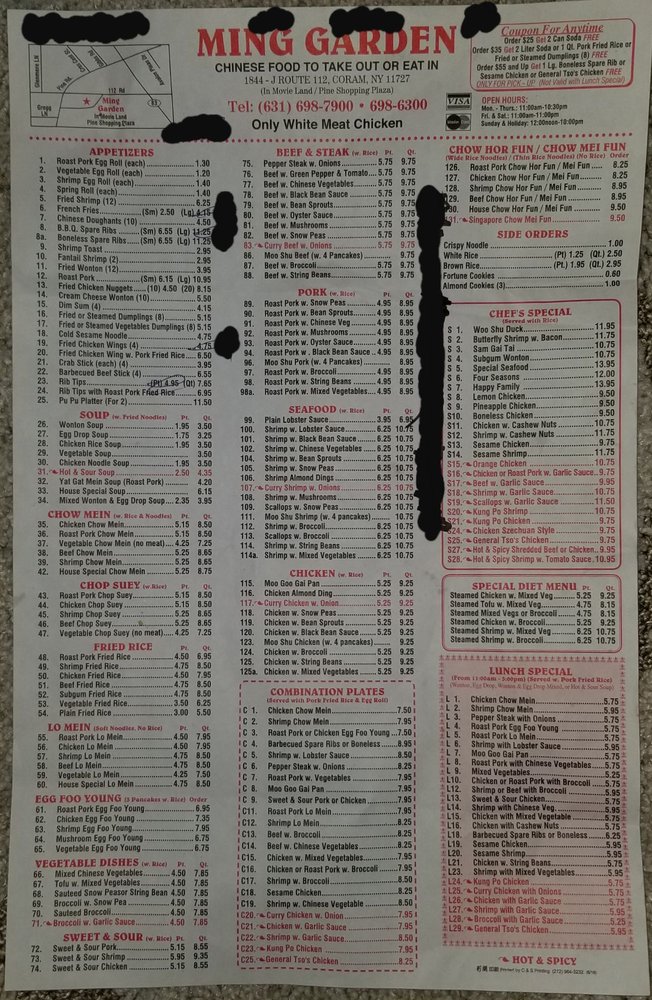 MING GARDEN
CHINESE FOOD TO TAKE OUT OR EAT IN
1844 - J ROUTE 112, CORAM, NY 11727
(In Movie Land / Pine Shopping Plaza)
Tel: (631) 698-7900 • 698-6300
Only White Meat Chicken
Granny Rd
112 Rd
Gregg LN
83
Ming Garden
In Movie Land
Pine Shopping Plaza
Coupon For Anytime
Order $25 Get 2 Can Soda FREE
Order $35 Get 2 Liter Soda or 1 Qt. Pork Fried Rice or
Fried or Steamed Dumplings (8) FREE
Order $55 and Up Get 1 Lg. Boneless Spare Rib or
Sesame Chicken or General Tso's Chicken FREE
ONLY FOR PICK-UP (Not Valid with Lunch Special)
VISA
OPEN HOURS:
Mon. - Thurs.: 11:00am-10:30pm
Fri. & Sat.: 11:00am-11:00pm
Sunday & Holiday: 12:00noon-10:00pm
APPETIZERS
1. Roast Pork Egg Roll (each) 1.30
2. Vegetable Egg Roll (each) 1.20
3. Shrimp Egg Roll (each) 1.40
4. Spring Roll (each) 1.40
5. Fried Shrimp (12) 6.25
6. French Fries (Sm) 2.50 (Lg) 4.15
7. Chinese Doughnuts (10) 4.50
8. B.B.Q. Spare Ribs (Sm) 6.55 (Lg) 11.25
8a. Boneless Spare Ribs (Sm) 6.55 (Lg) 11.25
9. Shrimp Toast 2.95
10. Fantail Shrimp (2) 2.95
11. Fried Wonton (12) 3.95
12. Roast Pork (Sm) 6.15 (Lg) 10.95
13. Fried Chicken Nuggets (10) 4.50 (20) 8.15
14. Cream Cheese Wonton (10) 5.50
15. Dim Sum (4) 4.15
16. Fried or Steamed Dumplings (8) 5.15
17. Fried or Steamed Vegetables Dumplings (8) 5.15
18. Cold Sesame Noodle 4.75
19. Fried Chicken Wings (4) 4.75
20. Fried Chicken Wing w. Pork Fried Rice 6.50
21. Crab Stick (each) (4) 3.95
22. Barbecued Beef Stick (4) 6.55
23. Rib Tips (Pt) 4.95 (Qt) 7.65
24. Rib Tips with Roast Pork Fried Rice 6.95
25. Pu Pu Platter (For 2) 11.50
SOUP (w. Fried Noodles) Pt. Qt.
26. Wonton Soup 1.95 3.50
27. Egg Drop Soup 1.75 3.25
28. Chicken Rice Soup 1.95 3.50
29. Vegetable Soup 3.50
30. Chicken Noodle Soup 1.95 3.50
31. Hot & Sour Soup 2.50 4.35
32. Yat Gat Mein Soup (Roast Pork) 4.20
33. House Special Soup 6.15
34. Mixed Wonton & Egg Drop Soup 2.35 3.95
CHOW MEIN (w. Rice & Noodles) Pt. Qt.
35. Chicken Chow Mein 5.15 8.50
36. Roast Pork Chow Mein 5.15 8.50
37. Vegetable Chow Mein (no meat) 4.25 7.25
38. Beef Chow Mein 5.25 8.65
39. Shrimp Chow Mein 5.25 8.65
42. House Special Chow Mein 5.25 8.75
CHOP SUEY (w. Rice) Pt. Qt.
43. Roast Pork Chop Suey 5.15 8.50
44. Chicken Chop Suey 5.15 8.50
45. Shrimp Chop Suey 5.25 8.65
46. Beef Chop Suey 5.25 8.65
47. Vegetable Chop Suey (no meat) 4.25 7.25
FRIED RICE Pt. Qt.
48. Roast Pork Fried Rice 4.50 6.95
49. Shrimp Fried Rice 4.75 8.50
50. Chicken Fried Rice 4.50 7.95
51. Beef Fried Rice 4.75 8.50
52. Subgum Fried Rice 4.75 8.50
53. Vegetable Fried Rice 3.50 6.25
54. Plain Fried Rice 3.00 5.50
LO MEIN (Soft Noodles. No Rice) Pt. Qt.
55. Roast Pork Lo Mein 4.50 7.95
56. Chicken Lo Mein 4.50 7.95
57. Shrimp Lo Mein 4.75 8.50
58. Beef Lo Mein 4.75 8.50
59. Vegetable Lo Mein 4.25 7.50
60. House Special Lo Mein 4.75 8.50
EGG FOO YOUNG (3 Pancakes w. Rice) Order
61. Roast Pork Egg Foo Young 6.95
62. Chicken Egg Foo Young 7.35
63. Shrimp Egg Foo Young 7.95
64. Mushroom Egg Foo Young 6.75
65. Vegetable Egg Foo Young 6.75
VEGETABLE DISHES (w. Rice) Pt. Qt.
66. Mixed Chinese Vegetables 4.50 7.85
67. Tofu w. Mixed Vegetables 4.50 7.85
68. Sauteed Snow Peasor String Bean 4.50 7.85
69. Broccoli w. Snow Pea 4.50 7.85
70. Sauteed Broccoli 4.50 7.85
71. Broccoli w. Garlic Sauce 4.50 7.85
SWEET & SOUR (w. Rice) Pt. Qt.
72. Sweet & Sour Pork 5.15 8.55
73. Sweet & Sour Shrimp 5.95 9.35
74. Sweet & Sour Chicken 5.15 8.55
BEEF & STEAK (w. Rice) Pt. Qt.
75. Pepper Steak w. Onions 5.75 9.75
76. Beef w. Green Pepper & Tomato 5.75 9.75
77. Beef w. Chinese Vegetables 5.75 9.75
78. Beef w. Black Bean Sauce 5.75 9.75
79. Beef w. Bean Sprouts 5.75 9.75
80. Beef w. Oyster Sauce 5.75 9.75
81. Beef w. Mushrooms 5.75 9.75
82. Beef w. Snow Peas 5.75 9.75
83. Curry Beef w. Onions 5.75 9.75
86. Moo Shu Beef (w. 4 Pancakes) 9.75
87. Beef w. Broccoli 5.75 9.75
88. Beef w. String Beans 5.75 9.75
PORK (w. Rice)
89. Roast Pork w. Snow Peas 4.95 8.95
90. Roast Pork w. Bean Sprouts 4.95 8.95
91. Roast Pork w. Chinese Veg 4.95 8.95
92. Roast Pork w. Mushrooms 4.95 8.95
93. Roast Pork w. Oyster Sauce 4.95 8.95
94. Roast Pork w. Black Bean Sauce 4.95 8.95
96. Moo Shu Pork (w. 4 Pancakes) 8.95
97. Roast Pork w. Broccoli 4.95 8.95
98. Roast Pork w. String Beans 4.95 8.95
98a. Roast Pork w. Mixed Vegetables 4.95 8.95
SEAFOOD (w. Rice) Pt. Qt.
99. Plain Lobster Sauce 3.95 6.95
100. Shrimp w. Lobster Sauce 6.25 10.75
101. Shrimp w. Black Bean Sauce 6.25 10.75
102. Shrimp w. Chinese Vegetables 6.25 10.75
104. Shrimp w. Bean Sprouts 6.25 10.75
105. Shrimp w. Snow Peas 6.25 10.75
106. Shrimp Almond Dings 6.25 10.75
107. Curry Shrimp w. Onions 6.25 10.75
108. Shrimp w. Mushrooms 6.25 10.75
109. Scallops w. Snow Peas 6.25 10.75
111. Moo Shu Shrimp (w. 4 pancakes) 10.75
112. Shrimp w. Broccoli 6.25 10.75
113. Scallops w. Broccoli 6.25 10.75
114. Shrimp w. String Beans 6.25 10.75
114a. Shrimp w. Mixed Vegetables 6.25 10.75
CHICKEN (w. Rice) Pt. Qt.
115. Moo Goo Gai Pan 5.25 9.25
116. Chicken Almond Ding 5.25 9.25
117. Curry Chicken w. Onion 5.25 9.25
118. Chicken w. Snow Peas 5.25 9.25
119. Chicken w. Bean Sprouts 5.25 9.25
120. Chicken w. Black Bean Sauce 5.25 9.25
123. Moo Shu Chicken (w. 4 pancakes) 9.25
124. Chicken w. Broccoli 5.25 9.25
125. Chicken w. String Beans 5.25 9.25
125a. Chicken w. Mixed Vegetables 5.25 9.25
COMBINATION PLATES
(Served with Pork Fried Rice & Egg Roll)
C 1. Chicken Chow Mein 7.50
C 2. Shrimp Chow Mein 7.95
C 3. Roast Pork or Chicken Egg Foo Young 7.50
C 4. Barbecued Spare Ribs or Boneless 8.95
C 5. Shrimp w. Lobster Sauce 8.50
C 6. Pepper Steak w. Onions 8.25
C 7. Roast Pork w. Vegetables 7.95
C 8. Moo Goo Gai Pan 7.95
C 9. Sweet & Sour Pork or Chicken 7.95
C11. Roast Pork Lo Mein 7.95
C12. Shrimp Lo Mein 8.25
C13. Beef w. Broccoli 8.25
C14. Beef w. Chinese Vegetables 8.25
C15. Chicken w. Mixed Vegetables 7.95
C16. Chicken or Roast Pork w. Broccoli 7.95
C17. Shrimp w. Broccoli 8.50
C18. Sesame Chicken 8.25
C19. Shrimp w. Chinese Vegetable 8.50
C20. Curry Chicken w. Onion 7.95
C21. Chicken w. Garlic Sauce 7.95
C22. Shrimp w. Garlic Sauce 8.50
C23. Kung Po Chicken 7.95
C25. General Tso's Chicken 8.25
CHOW HOR FUN / CHOW MEI FUN
(Wide Rice Noodles) / (Thin Rice Noodles) (No Rice) Order
126. Roast Pork Chow Hor Fun / Mei Fun 8.25
127. Chicken Chow Hor Fun / Mei Fun 8.25
128. Shrimp Chow Hor Fun / Mei Fun 8.95
129. Beef Chow Hor Fun / Mei Fun 8.95
130. House Chow Hor Fun / Mei Fun 9.50
131. Singapore Chow Mei Fun 9.50
SIDE ORDERS
Crispy Noodle 1.00
White Rice (Pt) 1.25 (Qt.) 2.50
Brown Rice (Pt.) 1.95 (Qt.) 2.95
Fortune Cookies 0.60
Almond Cookies (3) 1.00
CHEF'S SPECIAL
(Served with Rice)
S 1. Woo Shu Duck 11.95
S 2. Butterfly Shrimp w. Bacon 11.75
S 3. Sam Gai Tai 10.75
S 4. Subgum Wonton 10.75
S 5. Special Seafood 13.95
S 6. Four Seasons 12.00
S 7. Happy Family 13.95
S 8. Lemon Chicken 9.50
S 9. Pineapple Chicken 9.50
S10. Boneless Chicken 9.50
S11. Chicken w. Cashew Nuts 10.75
S12. Shrimp w. Cashew Nuts 11.75
S13. Sesame Chicken 9.75
S14. Sesame Shrimp 11.75
S15. Orange Chicken 10.75
S16. Chicken or Roast Pork w. Garlic Sauce 9.75
S17. Beef w. Garlic Sauce 9.95
S18. Shrimp w. Garlic Sauce 10.75
S19. Scallops w. Garlic Sauce 11.50
S20. Kung Po Shrimp 10.75
S21. Kung Po Chicken 9.75
S24. Chicken Szechuan Style 9.75
S25. General Tso's Chicken 9.75
S27. Hot & Spicy Shredded Beef or Chicken 9.95
S28. Hot & Spicy Shrimp w. Tomato Sauce 10.95
SPECIAL DIET MENU Pt. Qt.
Steamed Chicken w. Mixed Veg 5.25 9.25
Steamed Tofu w. Mixed Veg 4.75 8.15
Steamed Mixed Vegs or Broccoli 4.75 8.15
Steamed Chicken w. Broccoli 5.25 9.25
Steamed Shrimp w. Mixed Veg 6.25 10.75
Steamed Shrimp w. Broccoli 6.25 10.75
LUNCH SPECIAL
(From 11:00am - 3:00pm) (Served w. Pork Fried Rice)
(Wonton, Egg Drop, Wonton & Egg Drop Mixed, or Hot & Sour Soup)
L 1. Chicken Chow Mein 5.75
L 2. Shrimp Chow Mein 5.95
L 3. Pepper Steak with Onions 5.75
L 4. Roast Pork Egg Foo Young 5.75
L 5. Roast Pork Lo Mein 5.75
L 6. Shrimp with Lobster Sauce 5.95
L 7. Moo Goo Gai Pan 5.75
L 8. Roast Pork with Chinese Vegetables 5.75
L 9. Mixed Vegetables 5.25
L10. Chicken or Roast Pork with Broccoli 5.75
L12. Shrimp or Beef with Broccoli 5.95
L13. Sweet & Sour Chicken 5.75
L14. Shrimp with Chinese Veg. 5.95
L15. Chicken with Mixed Vegetable 5.75
L16. Chicken with Cashew Nuts 5.75
L18. Barbecued Spare Ribs or Boneless 6.25
L19. Sesame Chicken 5.95
L20. Sesame Shrimp 5.95
L21. Chicken w. String Beans 5.75
L23. Shrimp with Mixed Vegetables 5.95
L24. Kung Po Chicken 5.75
L25. Curry Chicken with Onions 5.75
L26. Chicken with Garlic Sauce 5.75
L27. Shrimp with Garlic Sauce 5.95
L28. Broccoli with Garlic Sauce 5.25
L29. General Tso's Chicken 5.95
HOT & SPICY
Printed by C & S Printing